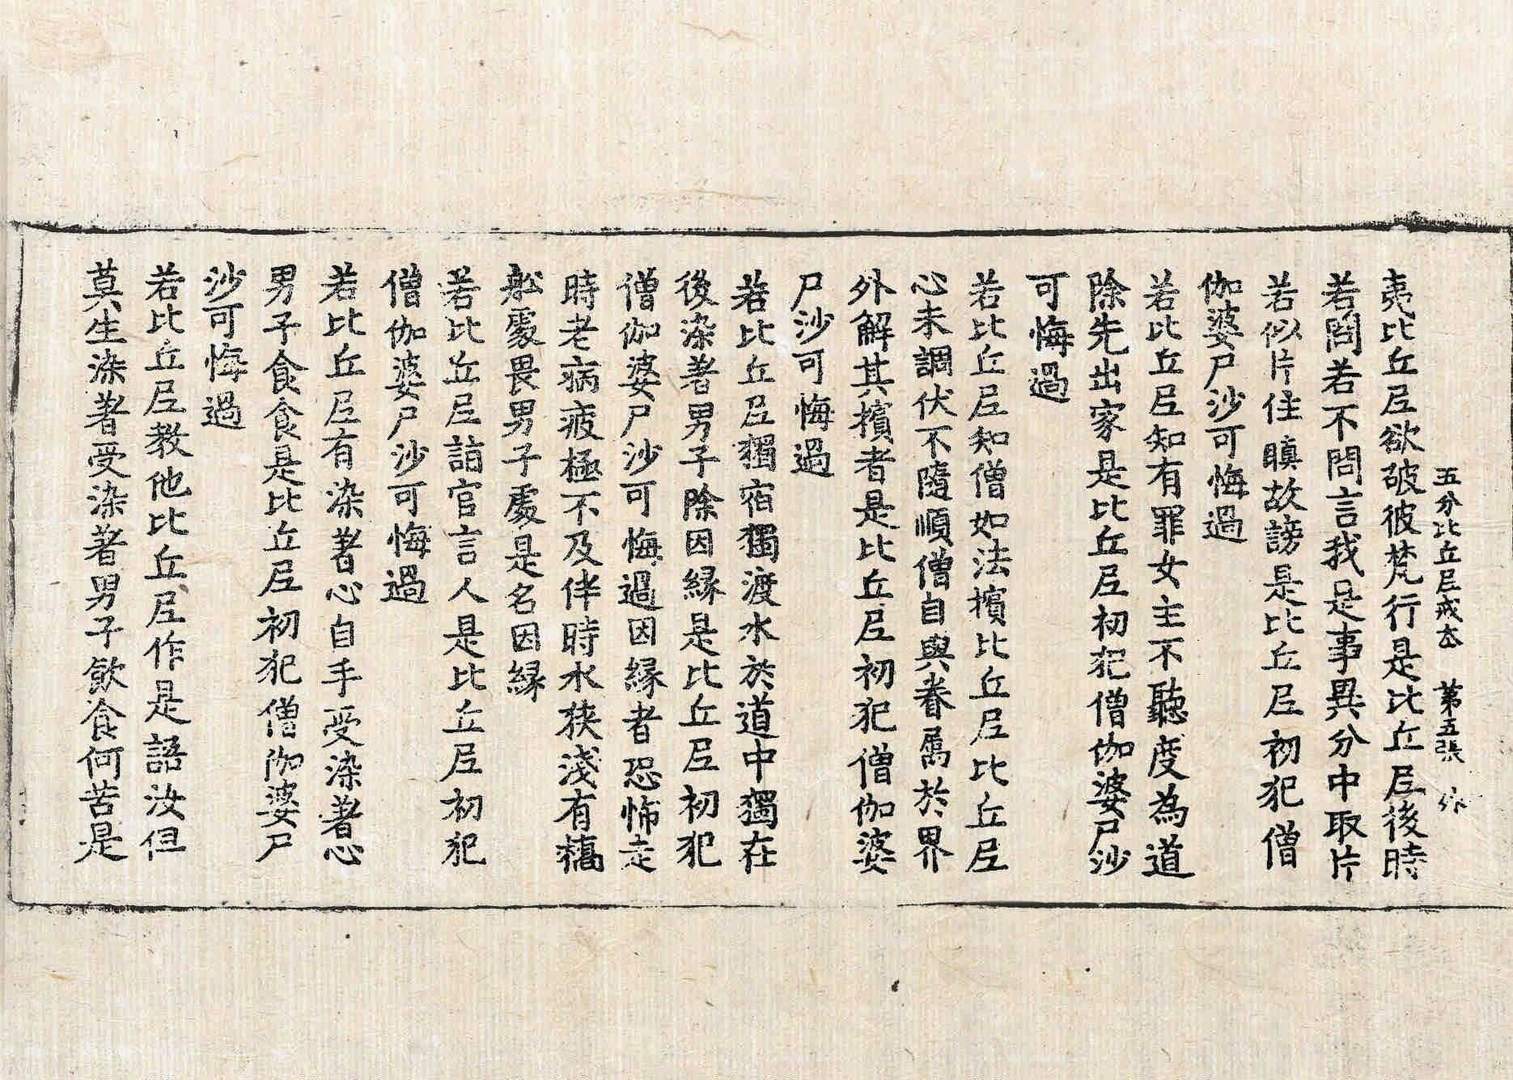 五分比丘尼戒本　第五張　作
夷比丘尼欲破彼梵行是比丘尼後時
若問若不問言我是事異分中取片
若似片住瞋故謗是比丘尼初犯僧
伽婆尸沙可悔過
若比丘尼知有罪女主不聽度為道
除先出家是比丘尼初犯僧伽婆尸沙
可悔過
若比丘尼知僧如法擯比丘尼比丘尼
心未調伏不隨順僧自與眷屬於界
外解其擯者是比丘尼初犯僧伽婆
尸沙可悔過
若比丘尼獨宿獨渡水於道中獨在
後染著男子除因緣是比丘尼初犯
僧伽婆尸沙可悔過因緣者恐怖走
時老病疲極不及伴時水狹淺有橋
舩處畏男子處是名因緣
若比丘尼詣官言人是比丘尼初犯
僧伽婆尸沙可悔過
若比丘尼有染著心自手受染著心
男子食食是比丘尼初犯僧伽婆尸
沙可悔過
若比丘尼教他比丘尼作是語汝但
莫生染著受染著男子飲食何苦是